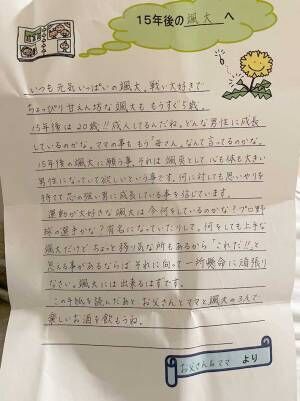 15年後の颯大へ
いつも元気いっぱいの颯大。戦い大好きで
ちょっぴり甘えん坊な颯大ももうすぐ5歳。
15年後は20歳!!成人してるんだね。どんな男性に成長
しているのかな。ママの事も「母さん」なんて言ってるのかな。
15年後の颯大に願う事、それは颯爽として心も体も大きい
男性になっていて欲しいという事です。何に対しても思いやりを
持てて芯の強い男に成長している事を信じています。
運動が大好きな颯大は今何をしているのかな?プロ野
球の選手かな?有名になっていたりして。何をしても上手な
颯大だけど ちょっと移り気な所もあるから「これだ!!」と
思える事があるならば それに向って一所懸命に頑張り
なさい。颯大には出来るはずです。
この手紙を読んだあと お父さんとママと颯大の3人で
楽しいお酒を飲もうね。
お父さん&ママ より